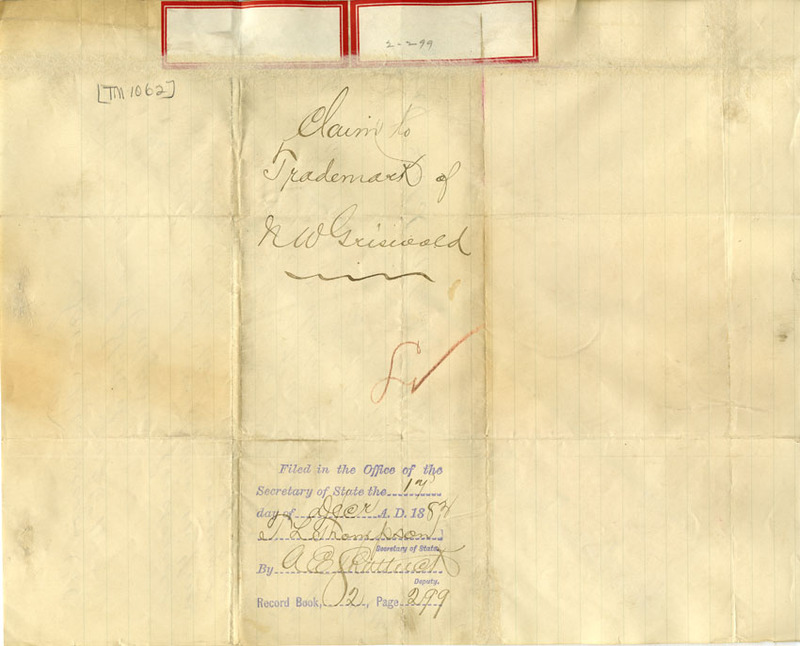 2-299
[TM 1062]
Claim to
Trademark of
N W Griswold
Filed in the Office of the
Secretary of State the 17
day of Decr A. D. 188
T L Thompson
Secretary of State
By A E
Deputy.
Record Book, 2, Page 299